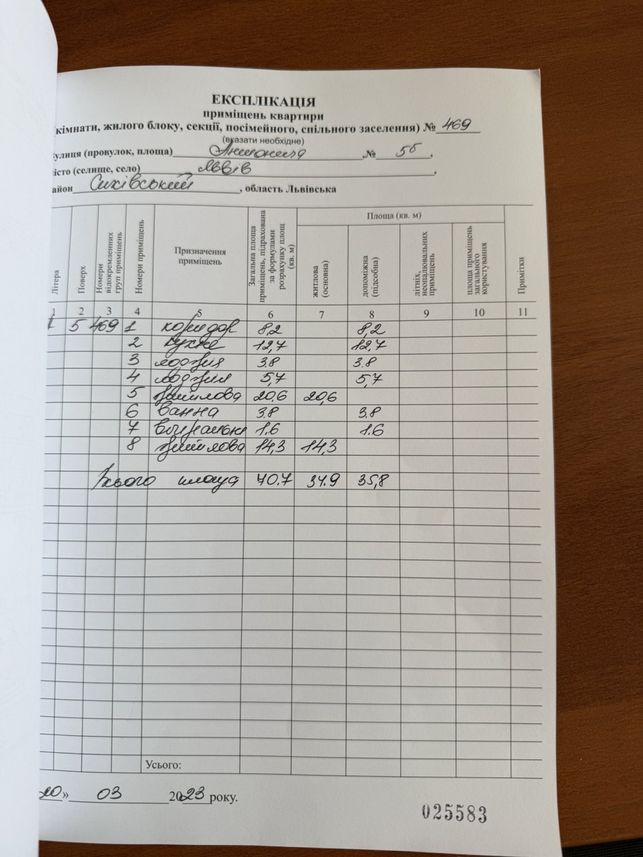 ЕКСПЛІКАЦІЯ
приміщень квартири
кімнати, жилого блоку, секції, посімейного, спільного заселення) № 469
(вказати необхідне)
улиця (провулок, площа) № 5б,
істо (селище, село) Львів,
айон Сихівський, область Львівська
Літера
Поверх
Номери відокремлених груп приміщень
Номери приміщень
Призначення приміщень
Загальна площа приміщень, підрахована за формулами розрахунку площ (кв. м)
Площа (кв. м)
житлова (основна)
допоміжна (підсобна)
літніх, неопалювальних приміщень
площа приміщень загального користування
Примітки
1 2 3 4 5 6 7 8 9 10 11
5 469 1 коридор 8,2 8,2
2 кухне 12,7 12,7
3 лоджия 3.8 3.8
4 лоджия 5,7 5,7
5 житлова 20,6 20,6
6 ванна 3,8 3,8
7 1.6 1.6
8 житлова 14,3 14,3
Всього площа 70.7 34.9 35,8
Усього:
20» 03 2023 року.
025583